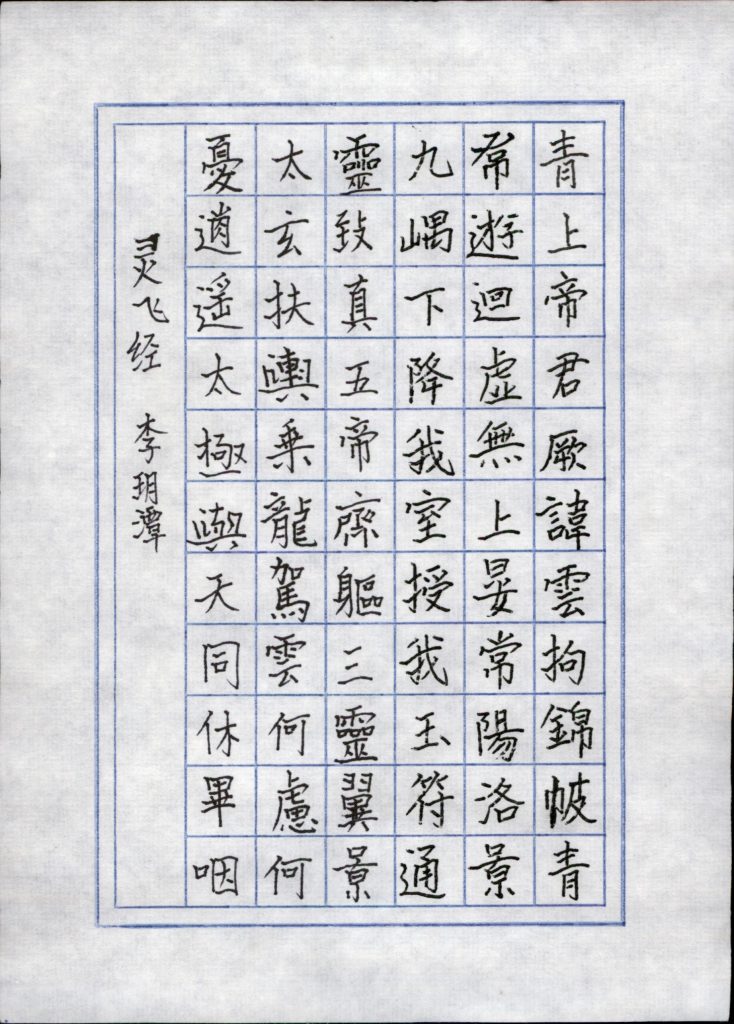 青上帝君厥諱雲拘錦帔青
帬遊迴虛無上晏常陽洛景
九嵎下降我室授我玉符通
靈致真五帝齊軀三靈翼景
太玄扶輿乗龍駕雲何慮何
憂逍遥太極與天同休畢咽
灵飞经 李玥潭